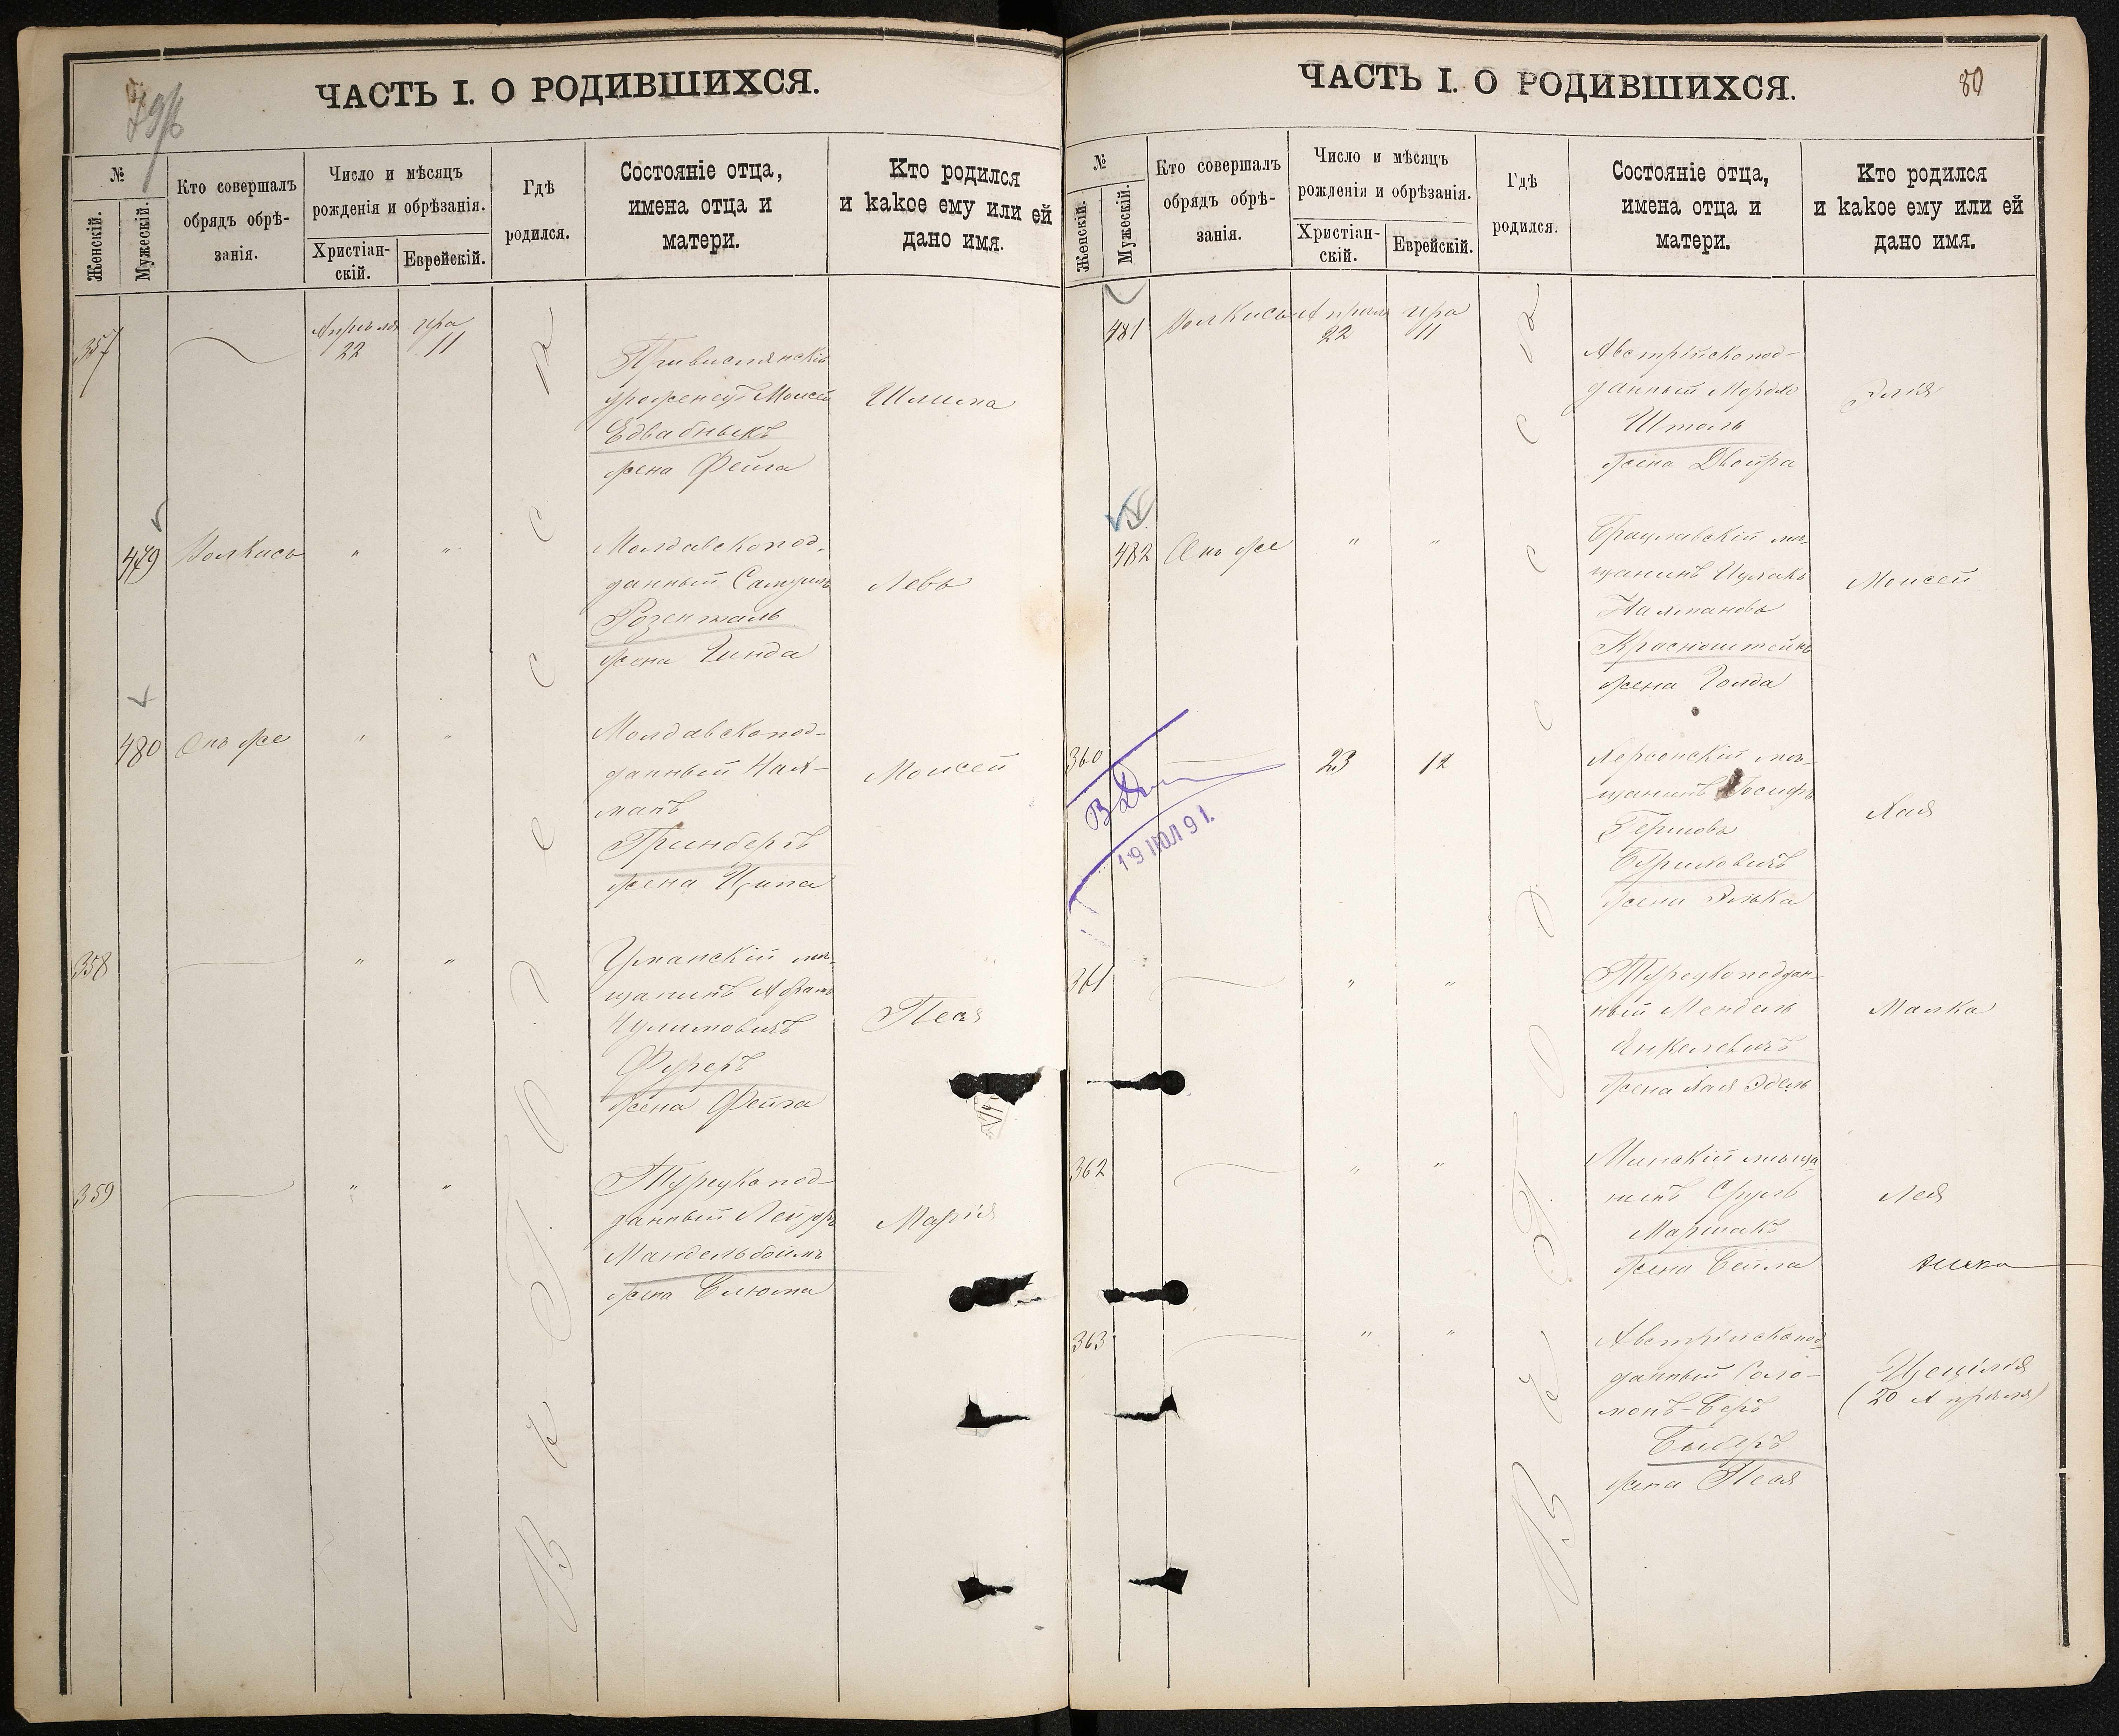 79/б
ЧАСТЬ I. О РОДИВШИХСЯ.
№
Женскій.
Мужескій.
Кто совершалъ
обрядъ обрѣ-
занія.
Число и мѣсяцъ
рожденія и обрѣзанія.
Христіан-
скій.
Еврейскій.
Гдѣ
родился.
Состояніе отца,
имена отца и
матери.
Кто родился
и какое ему или ей
дано имя.
357
Апрѣля
22
Ира
11
Привислянскій
уроженецъ Моисей
Едвабныкъ
жена Фейга
Шлима
479
Волкись
" "
Молдавскопод-
данный Самуилъ
Розенталь
жена Гинда
Левъ
480
Онъ же
" "
Молдавскопод-
данный Нах-
манъ
Гринбергъ
жена Ципа
Моисей
358
" "
Уманскій мѣ-
щанинъ Абрамъ
Фуреръ
жена Фейга
Песя
359
" "
Турецкопод-
данный Лейзеръ
Мандельбоймъ
жена Блюма
Марія
В ъ О д е с с ѣ
80
ЧАСТЬ I. О РОДИВШИХСЯ.
№
Женскій.
Мужескій.
Кто совершалъ
обрядъ обрѣ-
занія.
Число и мѣсяцъ
рожденія и обрѣзанія.
Христіан-
скій.
Еврейскій.
Гдѣ
родился.
Состояніе отца,
имена отца и
матери.
Кто родился
и какое ему или ей
дано имя.
481
Волкись
Апрѣля
22
Ира
11
Австрійскопод-
данный Мордко
Штоль
жена Двойра
Элія
482
Онъ же
" "
Брацлавскій мѣ-
щанинъ Ицхакъ
Нахмановъ
Красноштейнъ
жена Голда
Моисей
360
23
12
Херсонскій мѣ-
щанинъ Іосифъ
Гершовъ
жена Элька
Хая
19 ІЮЛ 91.
361
" "
Турецкоподдан-
ный Мендель
Янкелевичъ
жена Хая Эдель
Малка
362
" "
Минскій мѣща-
нинъ Сруль
Маршакъ
жена Бейла
Лея
363
" "
Австрійскопод-
данный Соло-
монъ-Беръ
Биберъ
жена Песя
Цецилія
(20 Апрѣля)
В ъ О д е с с ѣ